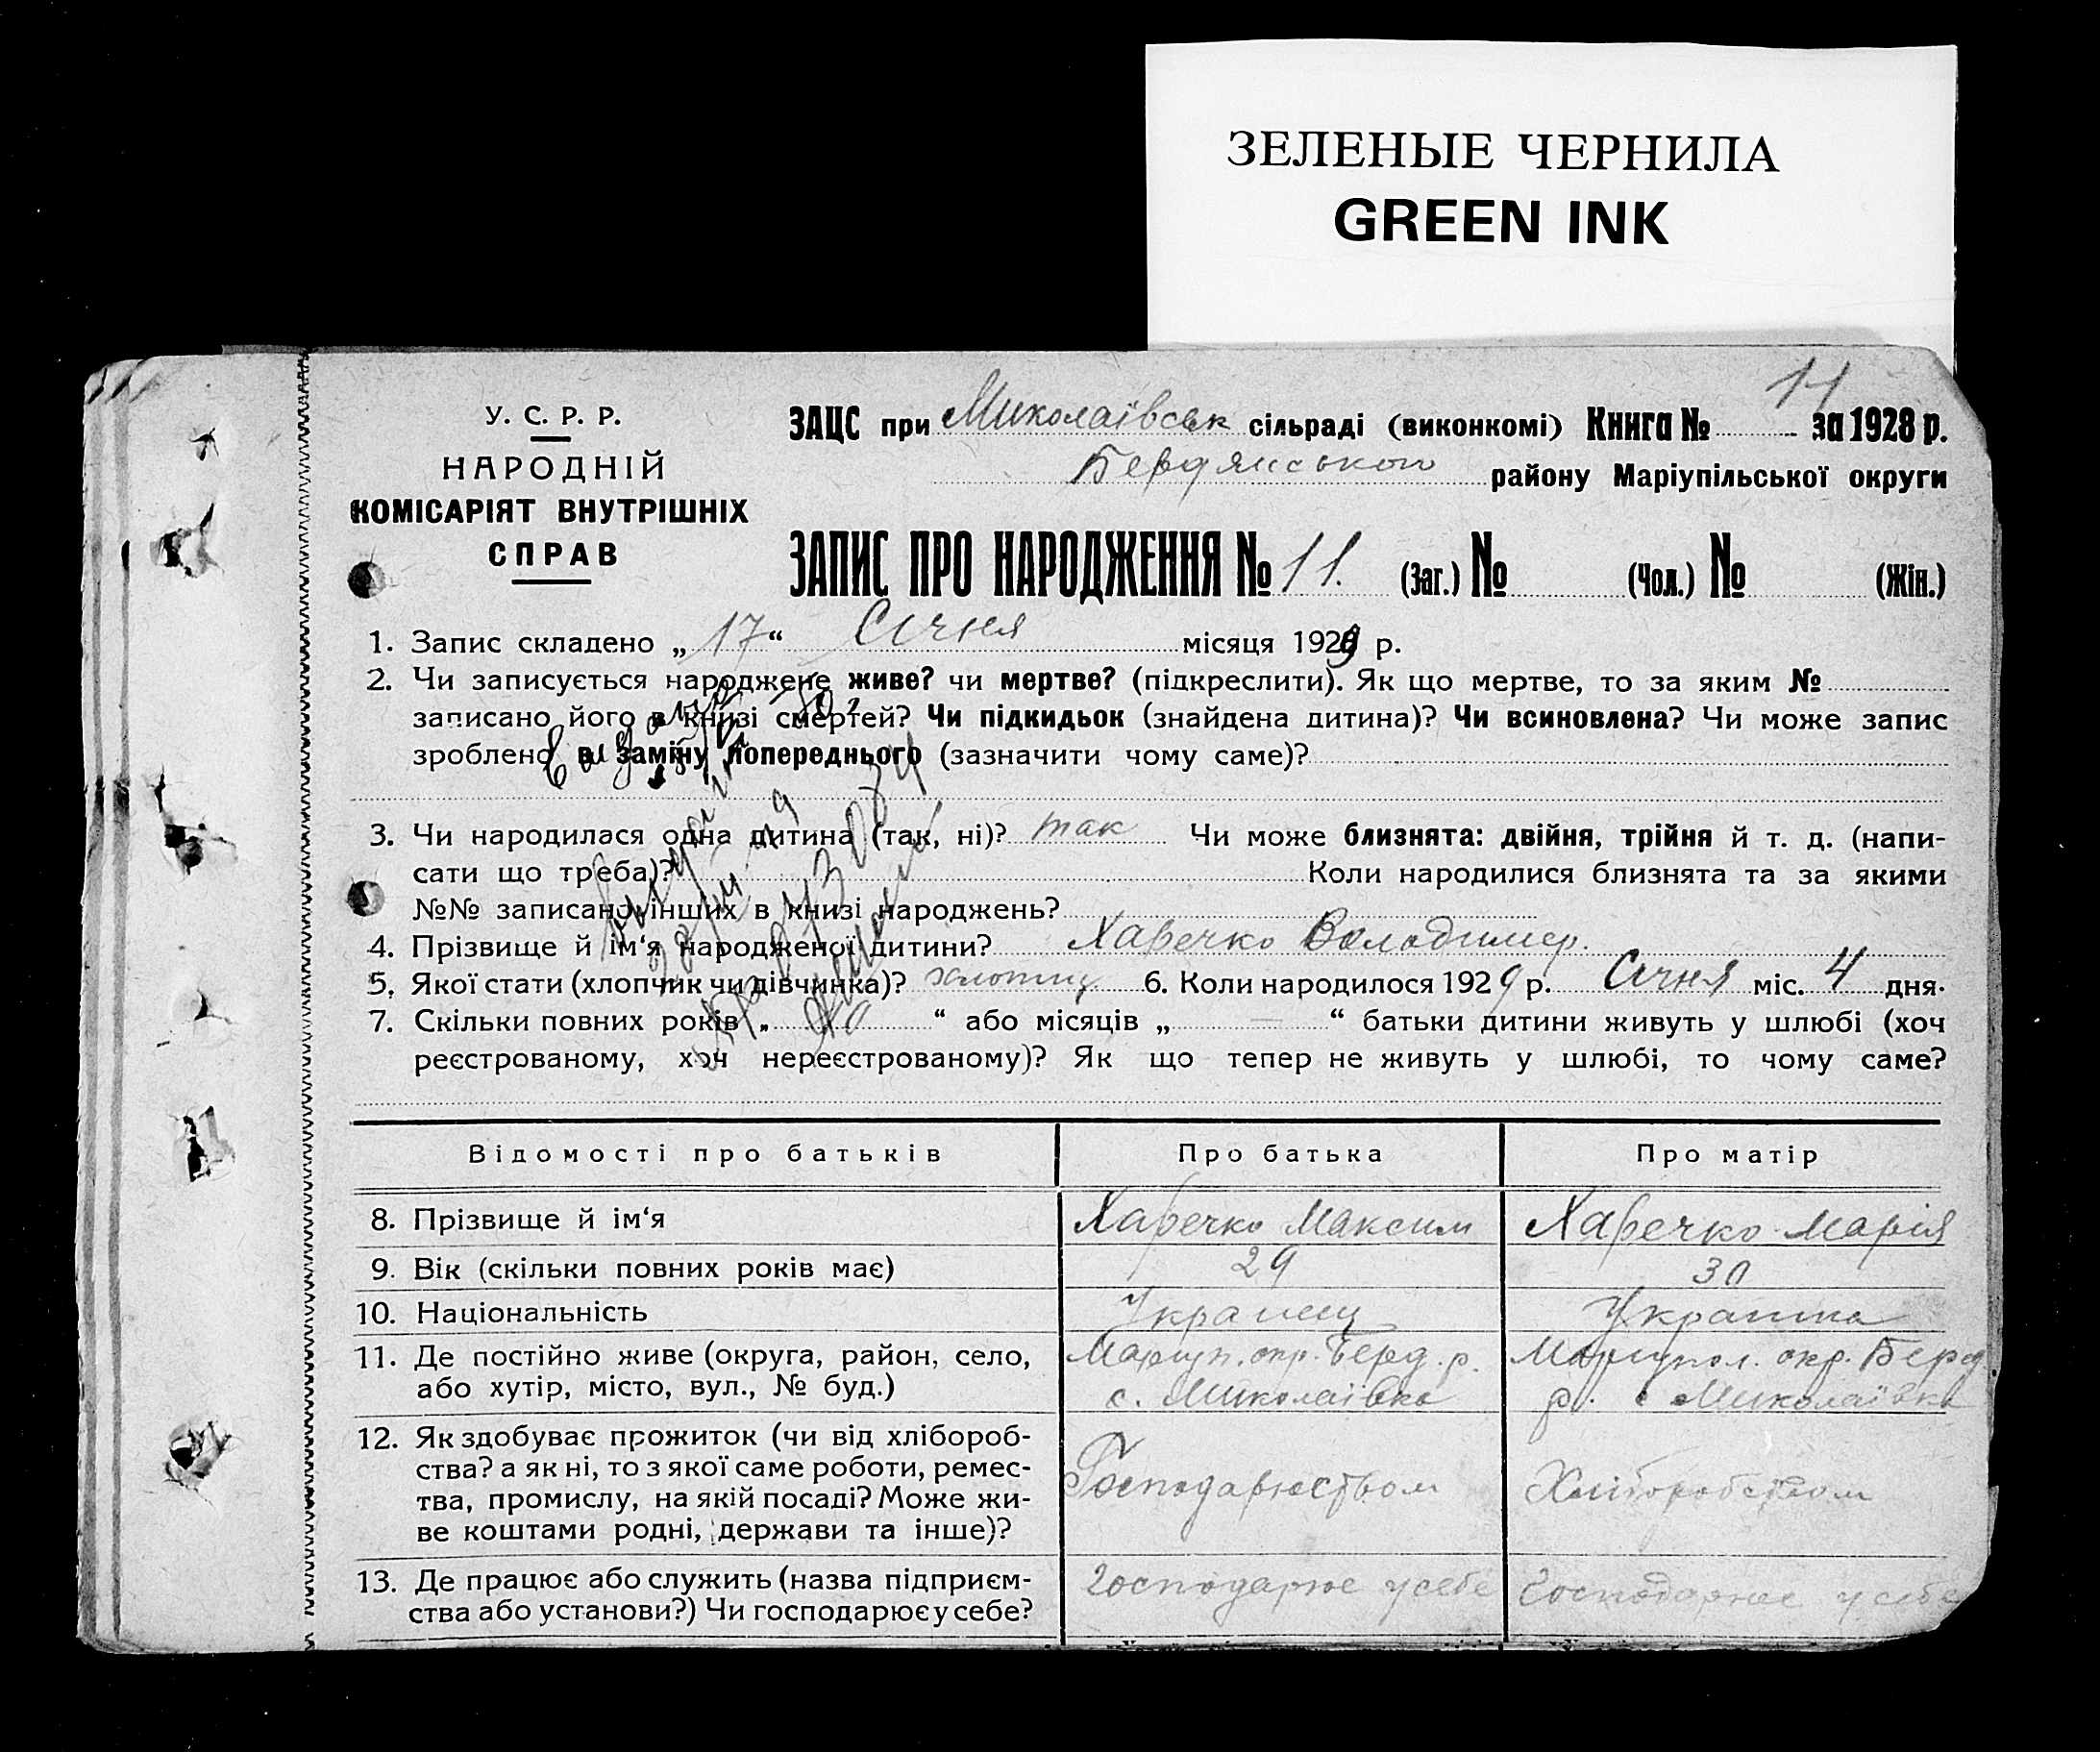 ЗЕЛЕНЫЕ ЧЕРНИЛА
GREEN INK
У. С. Р. Р.
НАРОДНІЙ
КОМІСАРІЯТ ВНУТРІШНІХ
СПРАВ
11
ЗАЦС при Миколаївськ сільраді (виконкомі) Книга № за 1928 р.
Бердянського району Маріупільської округи
ЗАПИС ПРО НАРОДЖЕННЯ № 11. (Заг.) № (Чол.) № (Жін.)
1. Запис складено „ 17 “ Січня місяця 1929 р.
2. Чи записується народжене живе? чи мертве? (підкреслити). Як що мертве, то за яким №
записано його в книзі смертей? Чи підкидьок (знайдена дитина)? Чи всиновлена? Чи може запис
зроблено в заміну попереднього (зазначити чому саме)?
3. Чи народилася одна дитина (так, ні)? так Чи може близнята: двійня, трійня й т. д. (напи-
сати що треба)? Коли народилися близнята та за якими
№№ записано інших в книзі народжень?
4. Прізвище й ім‘я народженої дитини? Харечко Володимер.
5. Якої стати (хлопчик чи дівчинка)? хлопчик 6. Коли народилося 1929 р. Січня міс. 4 дня.
7. Скільки повних років „ “ або місяців „ — “ батьки дитини живуть у шлюбі (хоч
реєстрованому, хоч нереєстрованому)? Як що тепер не живуть у шлюбі, то чому саме?
Відомості про батьків Про батька Про матір
8. Прізвище й ім‘я Харечко Максим Харечко Марія
9. Вік (скільки повних років має) 29 30
10. Національність Украінец Украінка
11. Де постійно живе (округа, район, село, Маріуп. окр. Берд. р. Маріупол. окр. Берд
або хутір, місто, вул., № буд.) с. Миколаївка р. с Миколаївка
12. Як здобуває прожиток (чи від хлібороб-
ства? а як ні, то з якої саме роботи, ремес-
тва, промислу, на якій посаді? Може жи-
ве коштами родні, держави та інше)?
Господарюством Хліборобством
13. Де працює або служить (назва підприєм- господарює у себе господарює у себе
ства або установи?) Чи господарює у себе?